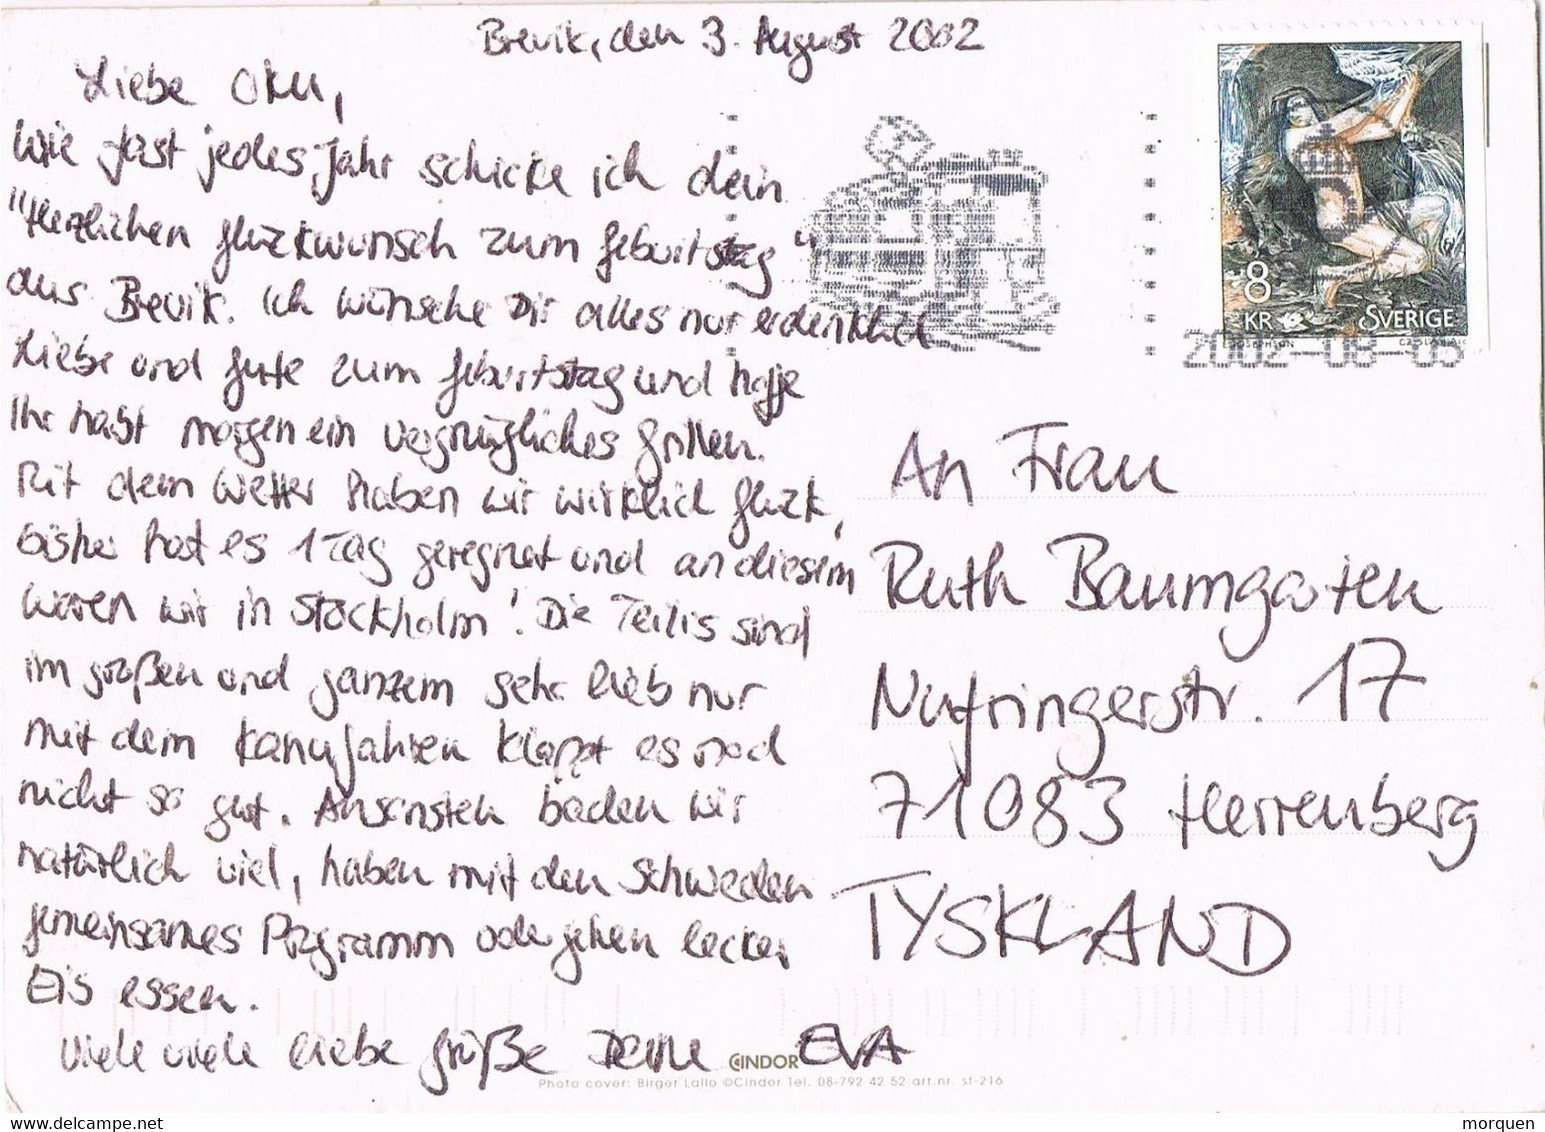 Brevik, den 3. August 2002
Liebe Oku,
Wie fast jedes Jahr schicke ich dein
"Herzlichen Glückwunsch zum Geburtstag"
aus Brevik. Ich wünsche Dir alles nur erdenklich
Liebe und Gute zum Geburtstag und hoffe
Ihr habt morgen ein vergnügliches Grillen.
Mit dem Wetter haben wir wirklich Glück,
bisher hat es 1 Tag geregnet und an diesem
waren wir in Stockholm! Die Teilis sind
im großen und ganzem sehr lieb nur
mit dem Kanufahren klappt es noch
nicht so gut. Ansonsten baden wir
natürlich viel, haben mit den Schweden
gemeinsames Programm oder gehen lecker
Eis essen.
Viele viele liebe Grüße Deine EVA
8
KR
SVERIGE
2002-08-05
An Frau
Ruth Baumgarten
Nufringerstr. 17
71083 Herrenberg
TYSKLAND
CINDOR
Photo cover: Birger Lallo ©Cindor Tel. 08-792 42 52 art.nr. st-216
www.delcampe.net
morquen